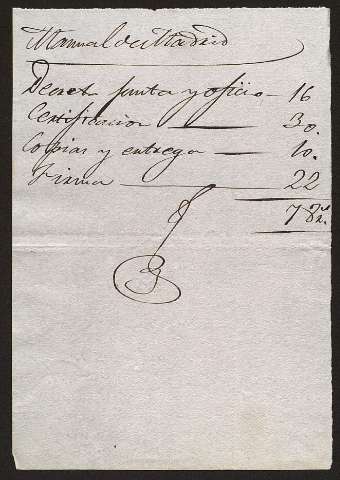 Manual de Madrid
Decreto junta y oficio — 16
Certificacion — 30.
Copias y entrega — 10.
Firma — 22
78